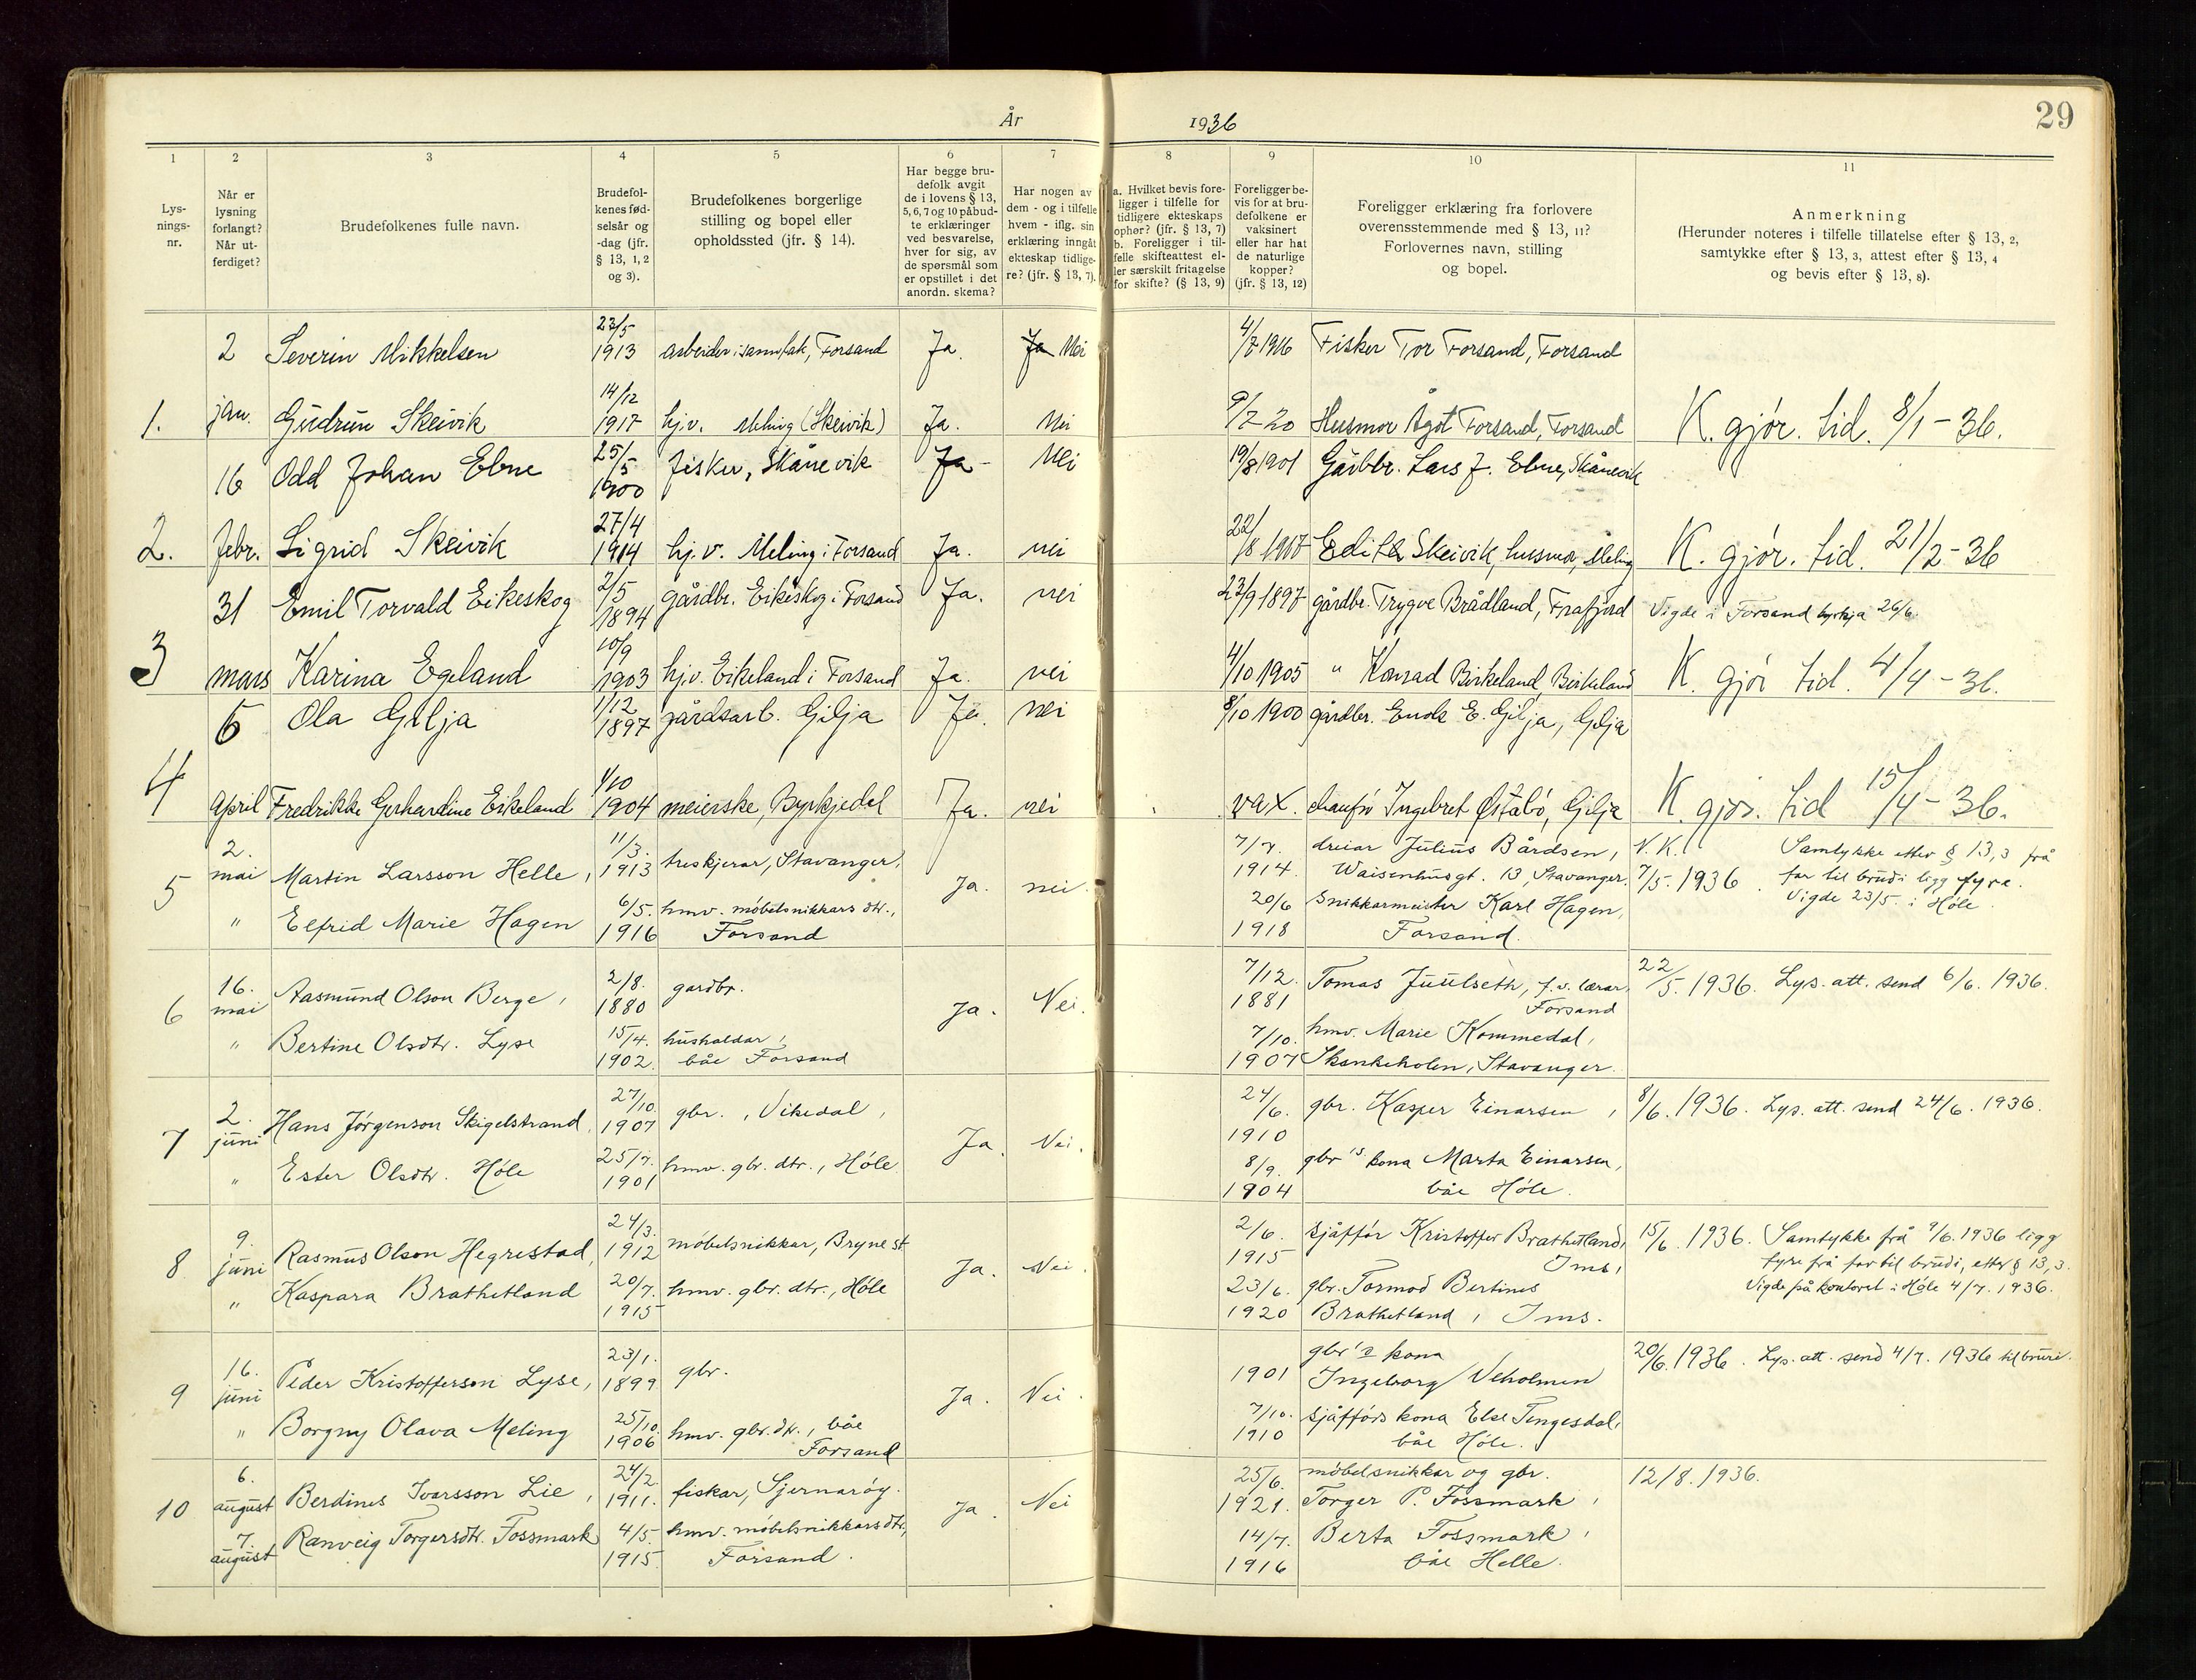 År 1936
29
1 2 3 4 5 6 7 8 9 10 11
Lys-
nings-
nr.
Når er
lysning
forlangt?
Når ut-
ferdiget?
Brudefolkenes fulle navn.
Brudefol-
kenes fød-
selsår og
-dag (jfr.
§ 13, 1, 2
og 3).
Brudefolkenes borgerlige
stilling og bopel eller
opholdssted (jfr. § 14).
Har begge bru-
defolk avgit
de i lovens § 13,
5, 6, 7 og 10 påbud-
te erklæringer
ved besvarelse,
hver for sig, av
de spørsmål som
er opstillet i det
anordn. skema?
Har nogen av
dem - og i tilfelle
hvem - iflg. sin
erklæring inngåt
ekteskap tidlige-
re? (jfr. § 13, 7).
a. Hvilket bevis fore-
ligger i tilfelle for
tidligere ekteskaps
ophør? (jfr. § 13, 7)
b. Foreligger i til-
felle skifteattest el-
ler særskilt fritagelse
for skifte? (§ 13, 9)
Foreligger be-
vis for at bru-
defolkene er
vaksinert
eller har hat
de naturlige
kopper?
(jfr. § 13, 12)
Foreligger erklæring fra forlovere
overensstemmende med § 13, 11?
Forlovernes navn, stilling
og bopel.
Anmerkning
(Herunder noteres i tilfelle tillatelse efter § 13, 2,
samtykke efter § 13, 3, attest efter § 13, 4
og bevis efter § 13, 8).
2 Severin Mikkelsen 23/5 1913 arbeider i sandtak, Forsand Ja. Ja Nei 4/7 1916 Fisker Tor Forsand, Forsand
1. jan. Gudrun Skeivik 14/12 1917 hj.v. Meling (Skeivik) Ja. Nei 9/7-20 Husmor Ågot Forsand, Forsand K. gjør. tid. 8/1-36.
16 Odd Johan Ebne 25/5 1900 fisker, Skånevik Ja - Nei 19/8 1901 Gårbbr. Lars J. Ebne, Skånevik
2. febr. Sigrid Skeivik 27/4 1914 hj.v. Meling i Forsand Ja. nei 22/8 1917 Edith Skeivik, husmor, Meling K. gjør. tid. 21/2-36
31 Emil Torvald Eikeskog 2/5 1894 gårdbr. Eikeskog i Forsand Ja. nei 23/9 1897 gårdbr. Trygve Brådland, Frafjord Vigde i Forsand kyrkja 26/6.
3 mars Karina Egeland 10/9 1903 hj.v. Eikeland i Forsand Ja. nei 4/10 1905 " Konrad Birkeland, Birkeland K. gjør tid. 4/4-36.
6 Ola Gilja 1/12 1897 gårdsarb. Gilja Ja. nei 8/10 1900 gårdbr. Enok E. Gilja, Gilja
4 April Fredrikke Gerhardine Eikeland 1/10 1904 meierske, Byrkjedal Ja. nei vax. chaufør Ingebret Østabø, Gilja K. gjør. tid 15/4-36.
2.
mai Martin Larsson Helle, 11/3. 1913 treskjerar, Stavanger, 7/7. 1914. dreiar Julius Bårdsen, N.K. Samtykke etter § 13,3 frå
5 Ja. nei. Waisenhusgt. 13, Stavanger. 7/5. 1936. far til brudi ligg fyre.
" Elfrid Marie Hagen 6/5. 1916 hmv. møbelsnikkars dtr., 20/6 1918 Snikkarmeister Karl Hagen, Vigde 23/5. i Høle.
Forsand Forsand.
16.
mai Aasmund Olson Berge, 2/8. 1880 gardbr. 7/12. 1881 Tomas Juulseth, f.v. lærar, 22/5. 1936. Lys. att. send 6/6. 1936.
6 Ja. Nei. Forsand
" Bertine Olsdtr. Lyse 15/4. 1902. husholdar, 7/10. 1907 hmv. Marie Kommedal,
båe Forsand Skankeholen, Stavanger.
2.
juni Hans Jørgenson Skigelstrand, 27/10. 1907 gbr., Vikedal, 24/6. 1910 gbr. Kasper Einarsen, 8/6. 1936. Lys. att. send 24/6. 1936.
7 Ja. Nei.
" Ester Olsdtr. Høle 25/7. 1901 hmv. gbr. dtr., Høle 8/9. 1904 gbr's kona Marta Einarsen,
båe Høle.
9.
juni Rasmus Olson Hegrestad, 24/3. 1912 møbelsnikkar, Bryne st. 2/6. 1915 sjåffør Kristoffer Brathetland, 15/6. 1936. Samtykke frå 9/6. 1936 ligg
8 Ja. Nei. Ims, fyre frå far til brudi, etter § 13,3.
" Kaspara Brathetland 20/7. 1915 hmv. gbr. dtr., Høle 23/6. 1920 gbr. Tormod Bertines Vigde på kontoret i Høle 4/7. 1936.
Brathetland, Ims.
16.
juni Peder Kristofferson Lyse, 23/1. 1899 gbr. 1901 gbr's kona 20/6. 1936. Lys. att. send 4/7. 1936 til brudi.
9 Ja. Nei. Ingeborg Veholmen
" Borgny Olava Meling 25/10. 1906 hmv. gbr. dtr., båe 7/10. 1910 sjåffórs kona Else Tengesdal,
Forsand båe Høle.
6.
august Berdines Ivarsson Lie, 24/2. 1911. fiskar, Sjernarøy. 25/6. 1921. møbelsnikkar og gbr. 12/8. 1936.
10 Ja. Nei Torger P. Fossmark,
7.
august Ranveig Torgersdtr. Fossmark 4/5. 1915. hmv. møbelsnikkarsdtr, 14/7. 1916 Berta Fossmark,
Forsand. båe Helle.